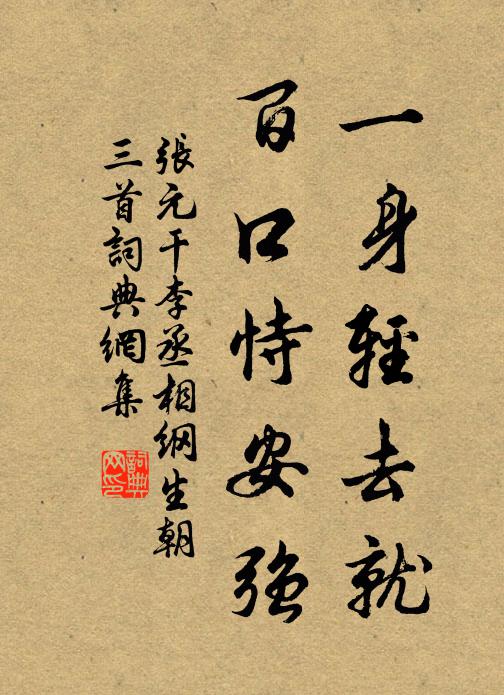 一身輕去就
百口恃安強
張元干李丞相纲生朝
三首詞典網集
詞典
网印